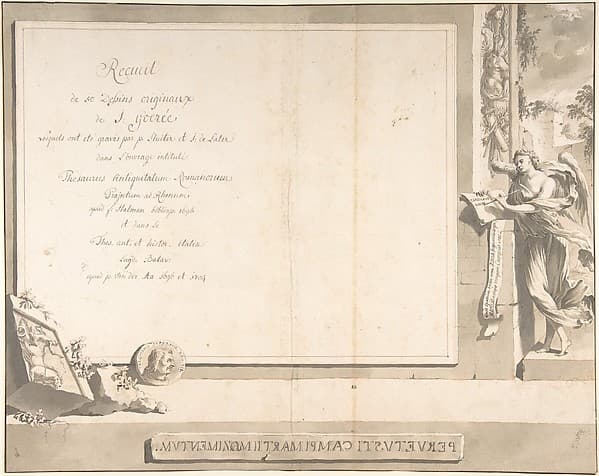 Recueil
de 50 Dessins originaux
de J. Goerée
lesquels ont eté gravés par p. Sluiter et J. de Later
dans l'ouvrage intitulé
Thesaurus Antiquitatum Romanarum
Trajectum ad Rhenum
apud f. Halman bibliop. 1696
et dans le
Thes. ant. et histor. Italiæ
Lugd. Batav.
apud p. Van der Aa 1696 et 1704
PERVETVSTI CAMPI MARTII MONIMENTVM.